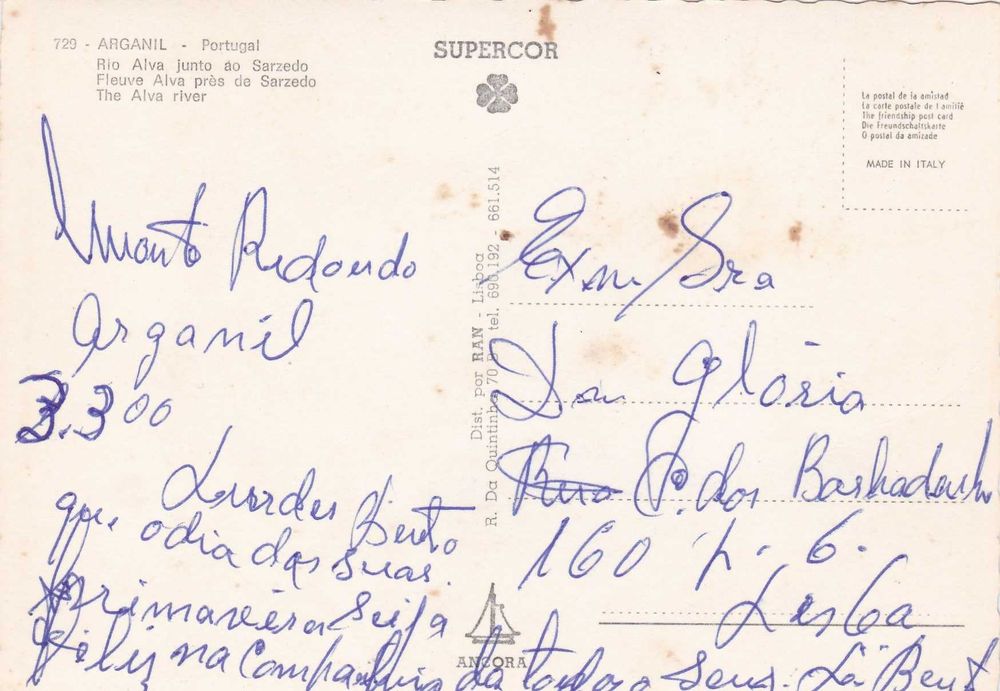 729 - ARGANIL - Portugal
Rio Alva junto ao Sarzedo
Fleuve Alva près de Sarzedo
The Alva river
SUPERCOR
La postal de la amistad
La carte postale de l amitié
The friendship post card
Die Freundschaftskarte
O postal da amizade
MADE IN ITALY
Dist. por RAN - Lisboa
R. Da Quintinha 70 B tel. 690.192 - 661.514
Monto Redondo
Arganil
3.3 00
Lurdes Bento
que o dia das suas.
Primavera Seija
Feliz na Companhia da todos o seus. Lâ Bent
Exm Sra
Don Glória
Rua P. dos
160 6.
Lisboa
ANCORA